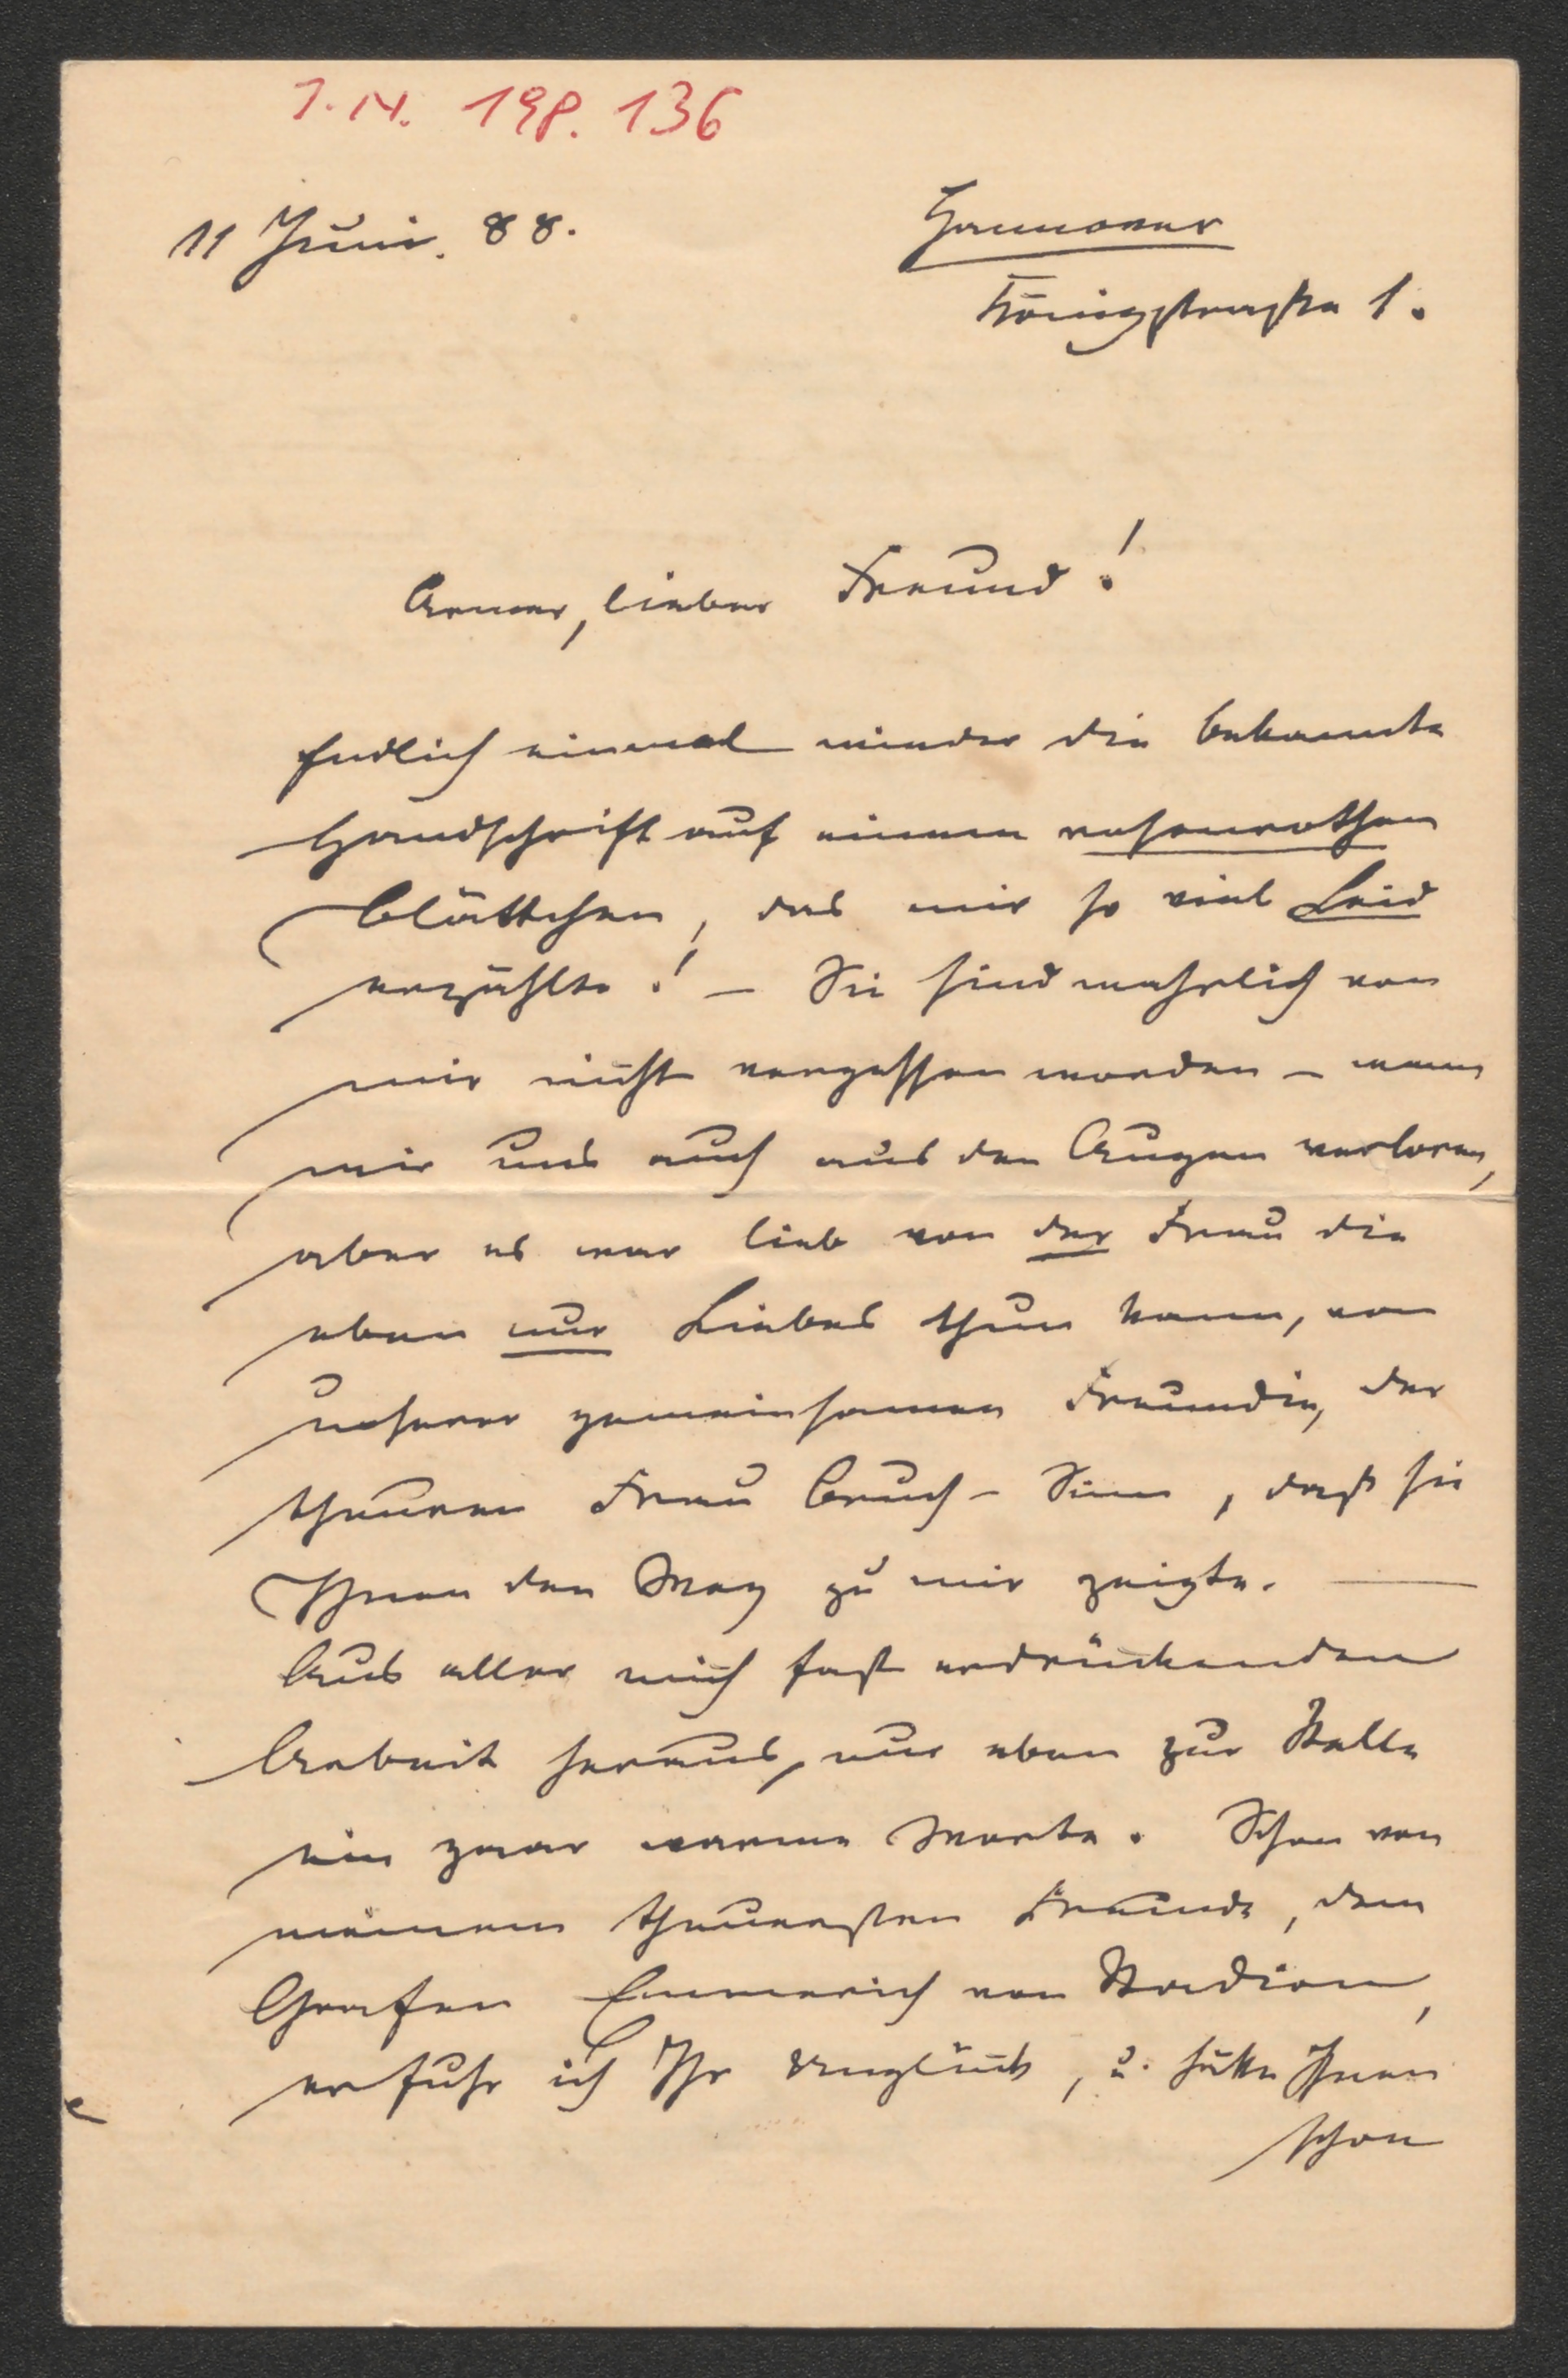 I.N. 198.136
11 Juni. 88.
Hannover
Königstraße 1.
Armer, lieber Freund!
Endlich einmal wieder die bekannte
Handschrift auf einem rosenrothen
Blättchen, das mir so viel Leid
erzählte! – Sie sind wahrlich von
mir nicht vergessen worden – wenn
wir uns auch aus den Augen verloren,
aber es war lieb von der Frau die
eben nur Liebes thun kann, von
unserer gemeinsamen Freundin, der
theuren Frau Bruch-Sinn, daß sie
Ihnen den Weg zu mir zeigte. —
Aus aller mich fast erdrückenden
Arbeit heraus, nur eben zur Stelle
ein paar warme Worte. Schon von
meinem theuersten Freunde, dem
Grafen Emmerich von Stadion,
erfuhr ich Ihr Unglück, u. hätte Ihnen
schon